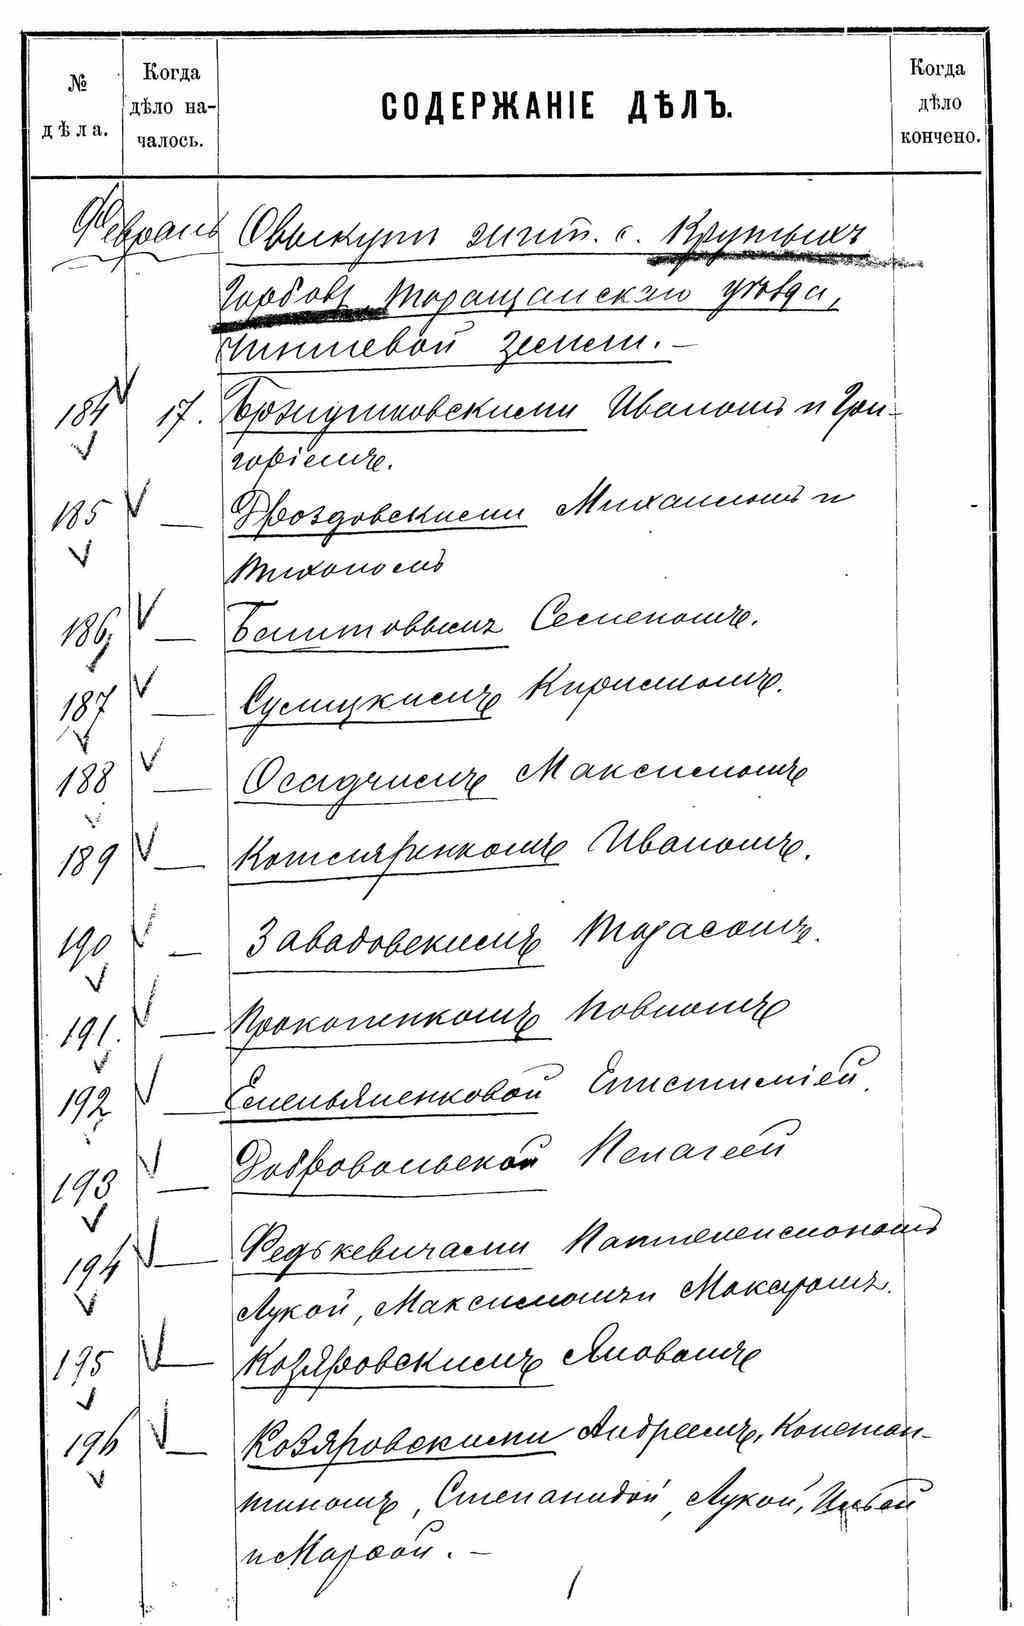 № дѣла.
Когда дѣло на-
чалось.
СОДЕРЖАНІЕ ДѢЛЪ.
Когда дѣло кончено.
Февраль О выкупѣ жит. с. Крутыхъ
Горбовъ, Таращанскаго уѣзда,
чиншевой земли. —
184 17. Бржидиковскими Иваномъ и Гри-
горіемъ.
185 — Дроздовскими Михаиломъ и
Тихономъ
186 — Балитовымъ Семеномъ.
187 — Сулицкимъ Кириломъ.
188 — Осадчимъ Максимомъ
189 — Котляренкомъ Иваномъ.
190 — Завадовскимъ Тарасомъ.
191. — Прокопенкомъ Павломъ
192 — Емельяненковой Епистиміей.
193 — Добровольской Пелагеей
194 — Федькевичами Пантелеимономъ
Лукой, Максимомъ и Макаромъ.
195 — Козяровскимъ Яковомъ
196 — Козяровскими Андреемъ, Констан-
тиномъ, Степанидой, Лукой, Ильей
и Марѳой. —